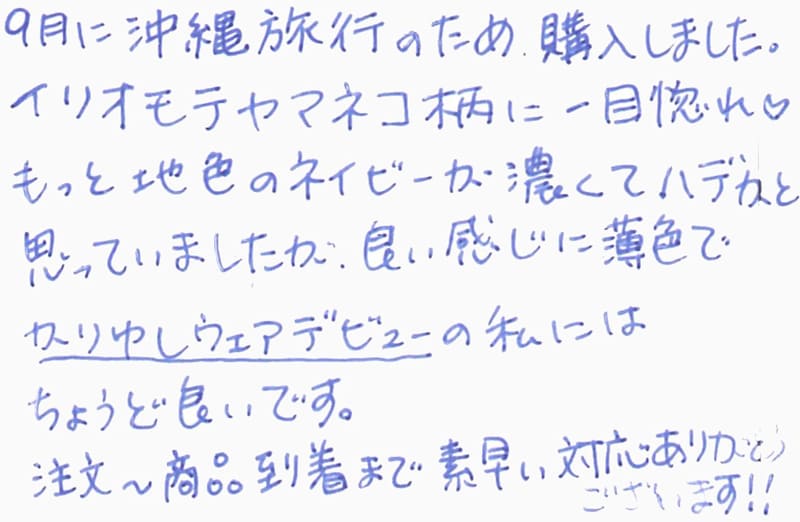 9月に沖縄旅行のため、購入しました。
イリオモテヤマネコ柄に一目惚れ♡
もっと地色のネイビーが濃くてハデかと
思っていましたが、良い感じに薄色で
かりゆしウェアデビューの私には
ちょうど良いです。
注文〜商品到着まで素早い対応ありがとう
ございます!!